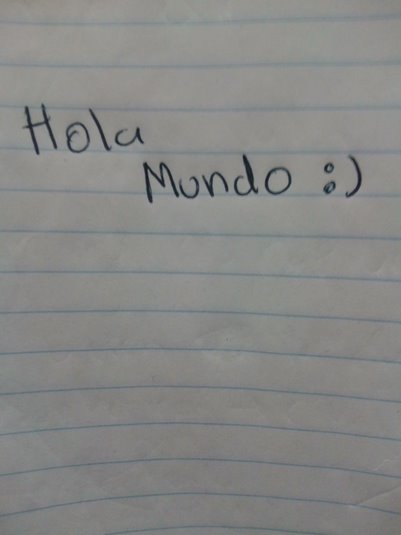 Hola
Mundo :)